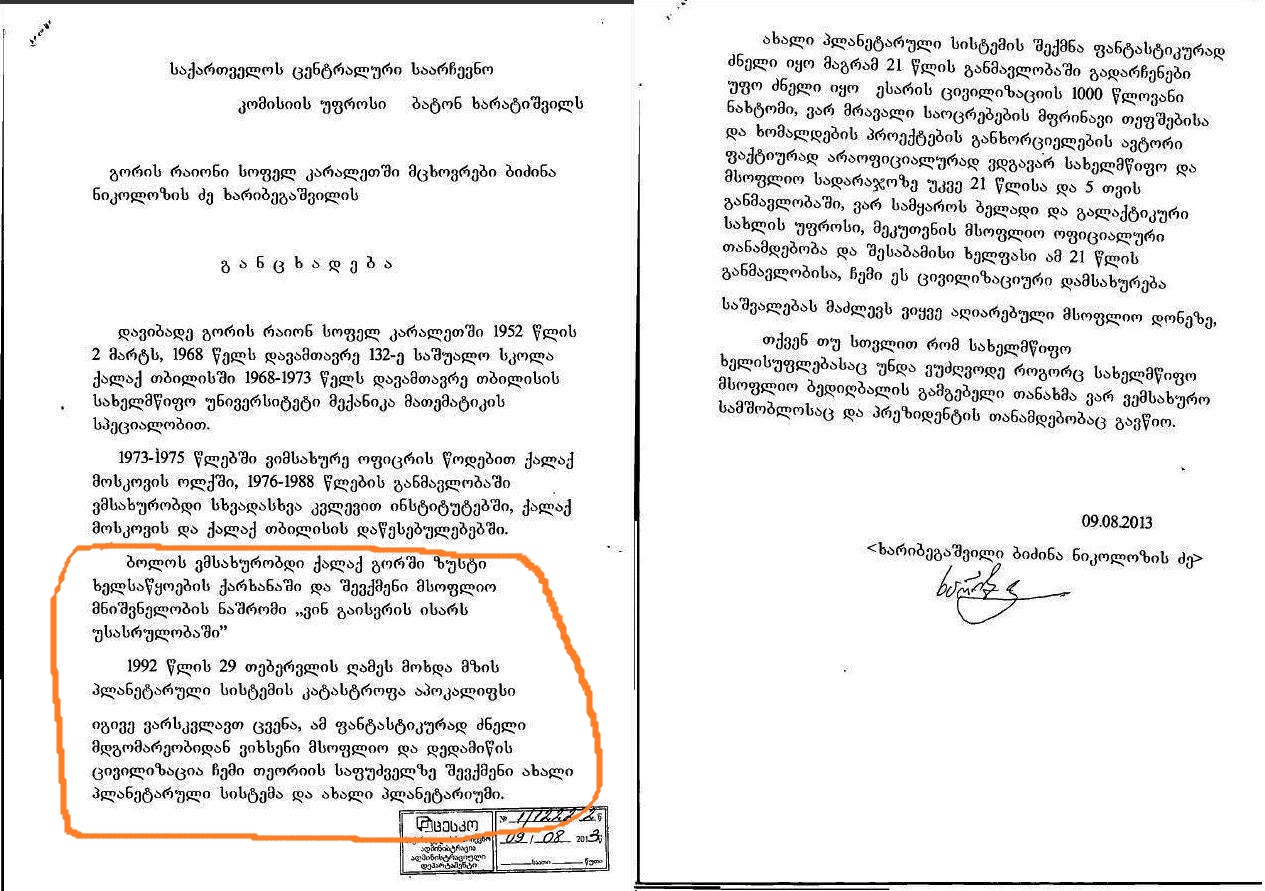 საქართველოს ცენტრალური საარჩევნო
კომისიის უფროსი ბატონ ხარატიშვილს
გორის რაიონი სოფელ კარალეთში მცხოვრები ბიძინა
ნიკოლოზის ძე ხარიბეგაშვილის
გ ა ნ ც ხ ა დ ე ბ ა
დავიბადე გორის რაიონ სოფელ კარალეთში 1952 წლის
2 მარტს, 1968 წელს დავამთავრე 132-ე საშუალო სკოლა
ქალაქ თბილისში 1968-1973 წელს დავამთავრე თბილისის
სახელმწიფო უნივერსიტეტი მექანიკა მათემატიკის
სპეციალობით.
1973-1975 წლებში ვიმსახურე ოფიცრის წოდებით ქალაქ
მოსკოვის ოლქში, 1976-1988 წლების განმავლობაში
ვმსახურობდი სხვადასხვა კვლევით ინსტიტუტებში, ქალაქ
მოსკოვის და ქალაქ თბილისის დაწესებულებებში.
ბოლოს ვმსახურობდი ქალაქ გორში ზუსტი
ხელსაწყოების ქარხანაში და შევქმენი მსოფლიო
მნიშვნელობის ნაშრომი „ვინ გაისვრის ისარს
უსასრულობაში”
1992 წლის 29 თებერვლის ღამეს მოხდა მზის
პლანეტარული სისტემის კატასტროფა აპოკალიფსი
იგივე ვარსკვლავთ ცვენა, ამ ფანტასტიკურად ძნელი
მდგომარეობიდან ვიხსენი მსოფლიო და დედამიწის
ცივილიზაცია ჩემი თეორიის საფუძველზე შევქმენი ახალი
პლანეტარული სისტემა და ახალი პლანეტარიუმი.
ცესკო
ადმინისტრაცია
ადმინისტრაციული
დეპარტამენტი
№ 1/1222 2
09 08 2013 წ
საათი წუთი
ახალი პლანეტარული სისტემის შექმნა ფანტასტიკურად
ძნელი იყო მაგრამ 21 წლის განმავლობაში გადარჩენები
უფო ძნელი იყო ესარის ცივილიზაციის 1000 წლოვანი
ნახტომი, ვარ მრავალი საოცრებების მფრინავი თეფშებისა
და ხომალდების პროექტების განხორციელების ავტორი
ფაქტიურად არაოფიციალურად ვდგავარ სახელმწიფო და
მსოფლიო სადარაჯოზე უკვე 21 წლისა და 5 თვის
განმავლობაში, ვარ სამყაროს ბელადი და გალაქტიკური
სახლის უფროსი, მეკუთვნის მსოფლიო ოფიციალური
თანამდებობა და შესაბამისი ხელფასი ამ 21 წლის
განმავლობისა, ჩემი ეს ცივილიზაციური დამსახურება
საშვალებას მაძლევს ვიყვე აღიარებული მსოფლიო დონეზე,
თქვენ თუ სთვლით რომ სახელმწიფო
ხელისუფლებასაც უნდა ვუძღვოდე როგორც სახელმწიფო
მსოფლიო ბედიღბალის გამგებელი თანახმა ვარ ვემსახურო
სამშობლოსაც და პრეზიდენტის თანამდებობაც გავწიო.
09.08.2013
<ხარიბეგაშვილი ბიძინა ნიკოლოზის ძე>